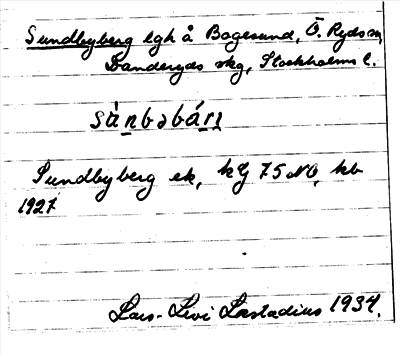 Sundbyberg lgh å Bogesund, Ö. Ryds sn,
Danderyds skg, Stockholms l.
sànbəbárj
Sundbyberg ek, kY 75 NO, kb
1927
Lars-Levi Læstadius 1934.